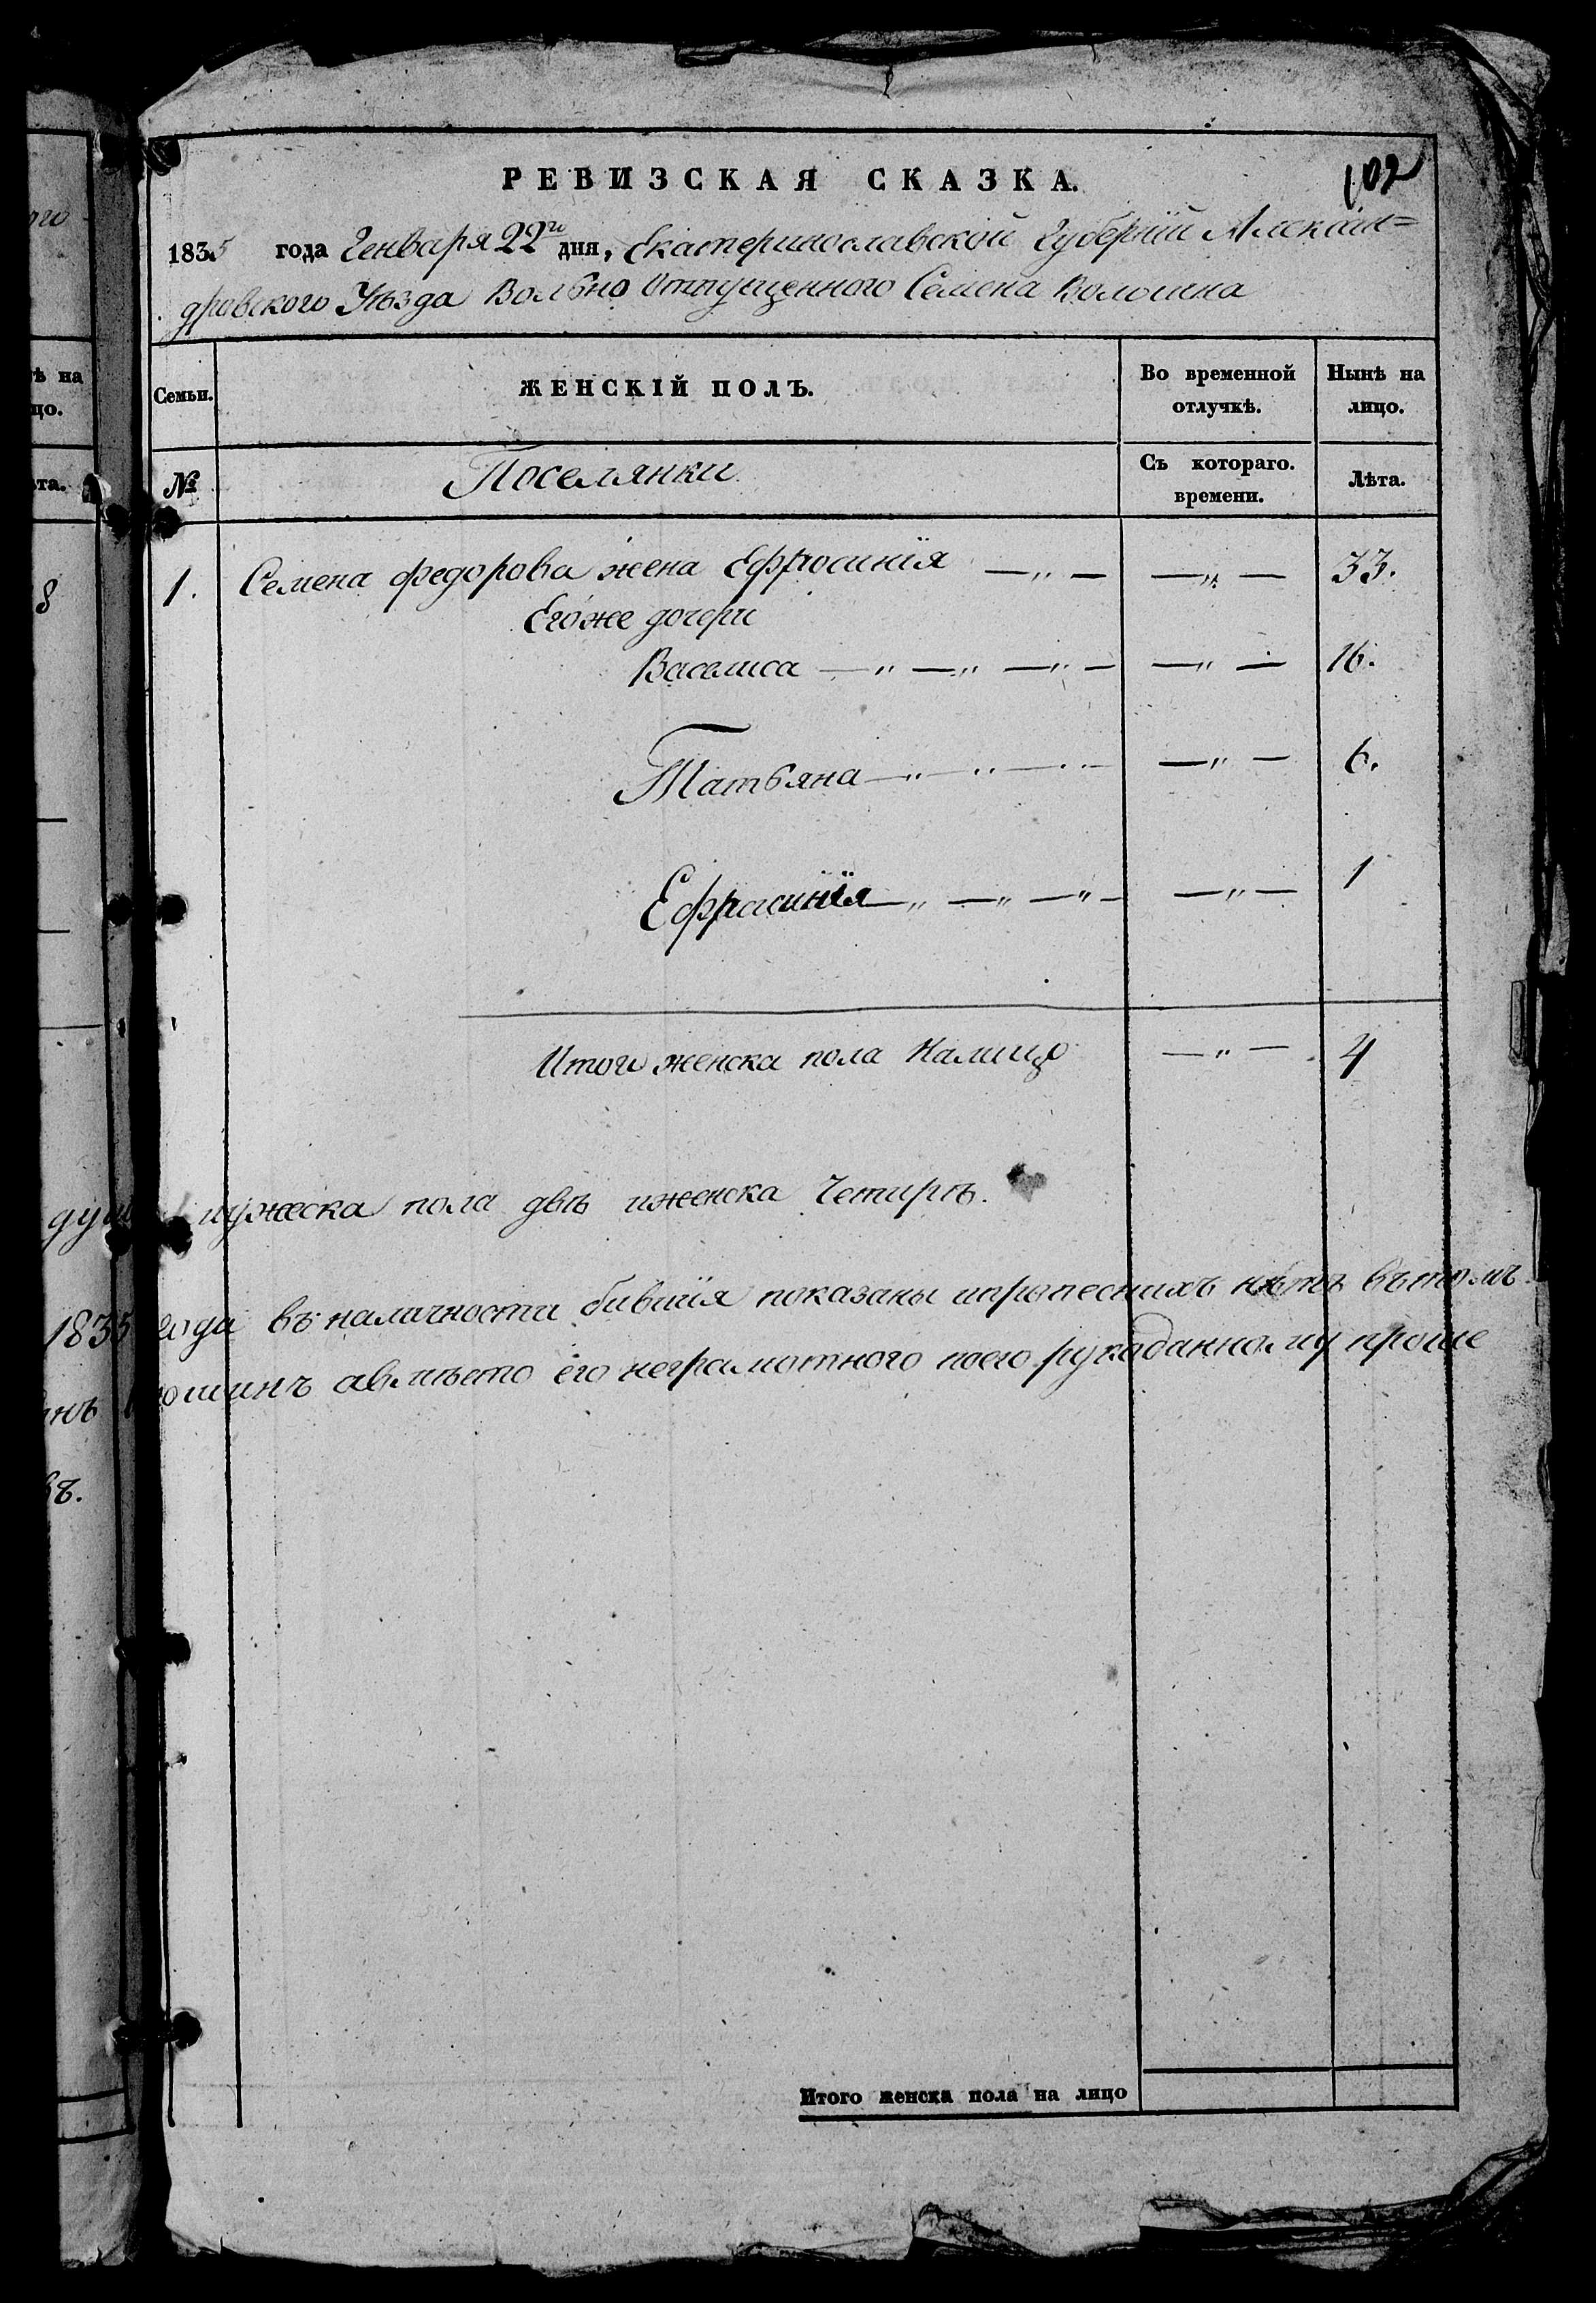 РЕВИЗСКАЯ СКАЗКА.
102
1835 года Генваря 22го дня, Екатеринославской Губерніи Алексан=
дровского Уѣзда Вольно Отпущенного Семена Волошина
Семьи.
ЖЕНСКІЙ ПОЛЪ.
Во временной отлучкѣ.
Нынѣ на лицо.
№
Поселянки
Съ котораго. времени.
Лѣта.
1. Семена Федорова жена Ефросинія —„— —„— 33.
Егоже дочери
Василиса —„—„—„— —„— 16.
Татьяна —„—„—„— —„— 6.
Ефросинія —„—„—„— —„— 1
Итого женска пола Налицо —„— 4
мужеска пола двѣ иженска Четирѣ.
1835 года въ наличности бившія показаны ипрописнихъ нѣтъ вътомъ
ошинъ авмѣсто его неграмотного поего рукоданному проше
Итого женска пола на лицо